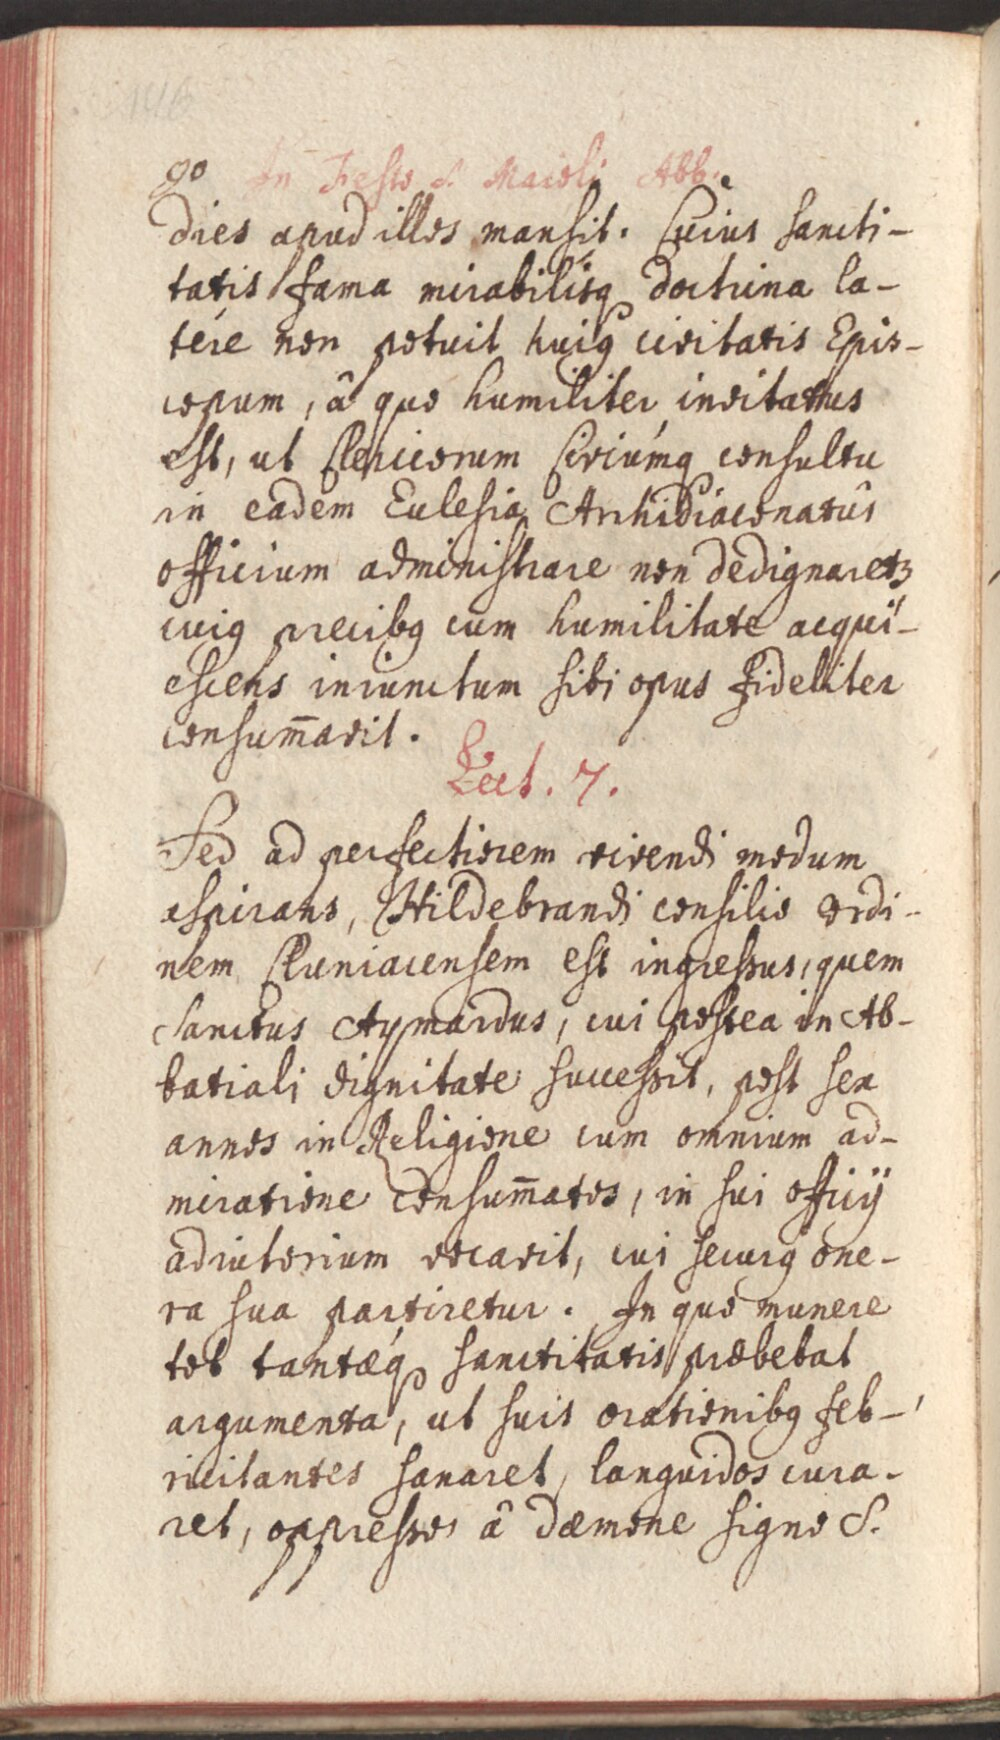 90 In Festo S. Maioli Abb.
dies apud illos mansit. Cuius sancti-
tatis fama mirabilísq doctrina la-
tére non potuit huig civitatis Epis-
copum, â quo humiliter invitatus
est, ut Clericorum Civiúmq consultu
in eadem Eclesia Archidiaconatûs
officium administrare non dedignaretz
cuig precibg cum humilitate acqui-
escens iniunctum sibi opus fideliter
consum̄avit.
Lect. 7.
Sed ad perfectiorem vivendi modum
aspirans, Hildebrandi consilio ordi-
nem Cluniacensem est ingressus, quem
Sanctus Aymardus, cui postea in Ab-
batiali dignitate successit, post sex
annos in Religione cum omnium ad-
miratione consum̄atos, in sui officÿ
adiutorium vocavit, cui securg one-
ra sua partiretur. In quo munere
tot tantǽq sanctitatis præbebat
argumenta, ut suis orationibg feb-
ricitantes sanaret, languidos cura-
ret, oppressos â dæmone signo S.